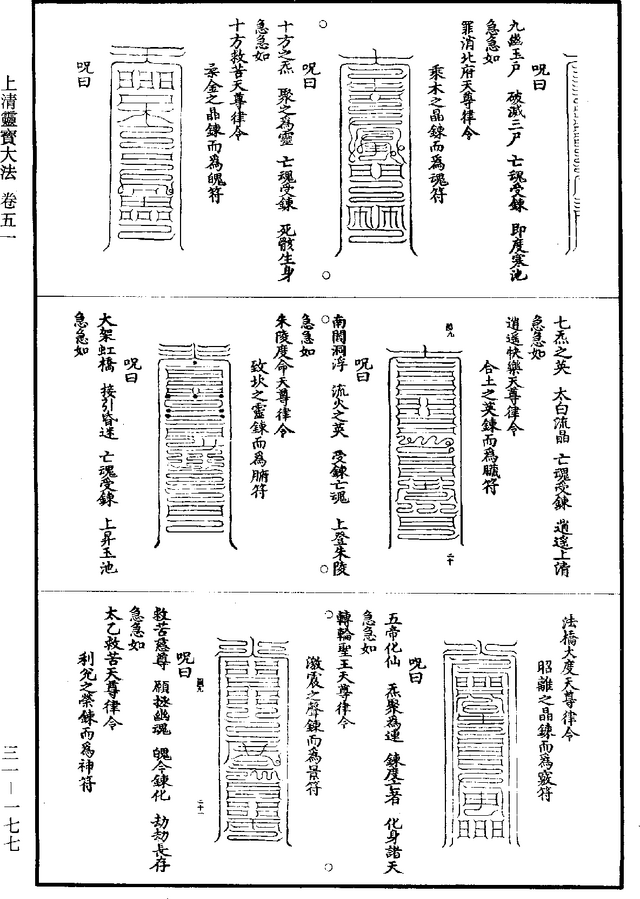 呪曰
九幽玉戶　破滅三尸　亡魂受鍊　即度寒池
急急如
罪消北府天尊律令
乘木之晶鍊而為魂符
呪曰
十方之炁　聚之為靈　亡魂受鍊　死骸生身
急急如
十方救苦天尊律令
柔金之晶鍊而為魄符
呪曰
七炁之英　太白流晶　亡魂受鍊　逍遙上清
急急如
逍遙快樂天尊律令
合土之英鍊而為臟符
呪曰
南閣洞浮　流火之英　受鍊亡魂　上登朱陵
急急如
朱陵度命天尊律令
致坎之靈鍊而為腑符
呪曰
大架虹橋　接引昏迷　亡魂受鍊　上昇玉池
急急如
法橋大度天尊律令
昭離之晶鍊而為竅符
呪曰
五帝化仙　炁聚為連　鍊度亡者　化身諸天
急急如
轉輪聖王天尊律令
激震之聲鍊而為景符
呪曰
救苦慈尊　願拯幽魂　魄今鍊化　劫劫長存
急急如
太乙救苦天尊律令
利兌之榮鍊而為神符
上清靈寶大法　卷五一
三一—一七七